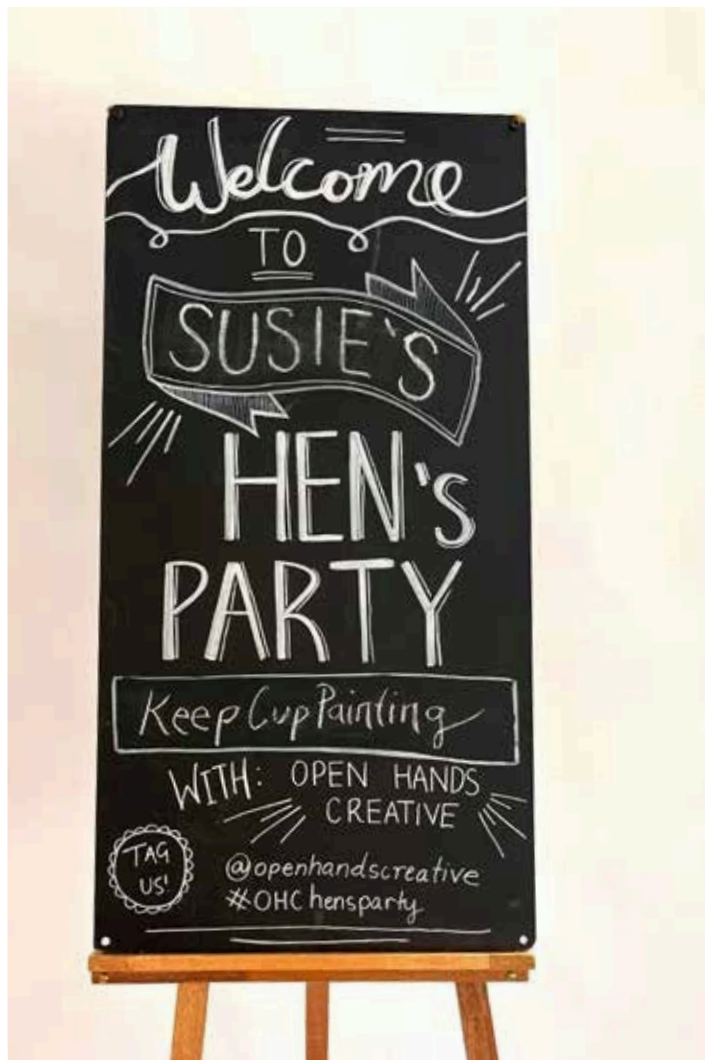 Welcome
TO
SUSIE'S
HEN's
PARTY
Keep Cup Painting
WITH: OPEN HANDS
CREATIVE
TAG
US'
@openhandscreative
#OHChensparty